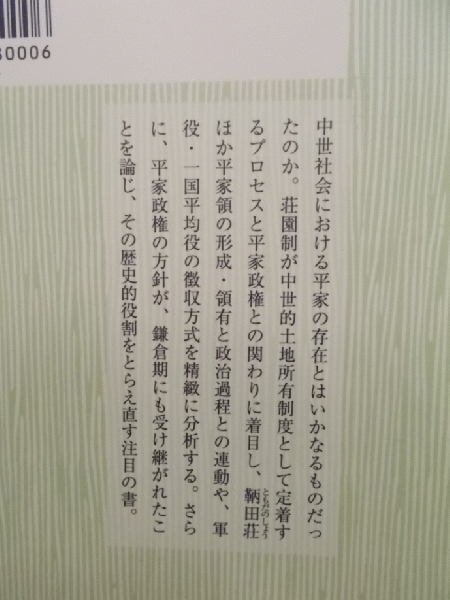 80006
中世社会における平家の存在とはいかなるものだっ
たのか。荘園制が中世的土地所有制度として定着す
るプロセスと平家政権との関わりに着目し、鞆田荘
ともだのしょう
ほか平家領の形成・領有と政治過程との連動や、軍
役・一国平均役の徴収方式を精緻に分析する。さら
に、平家政権の方針が、鎌倉期にも受け継がれたこ
とを論じ、その歴史的役割をとらえ直す注目の書。